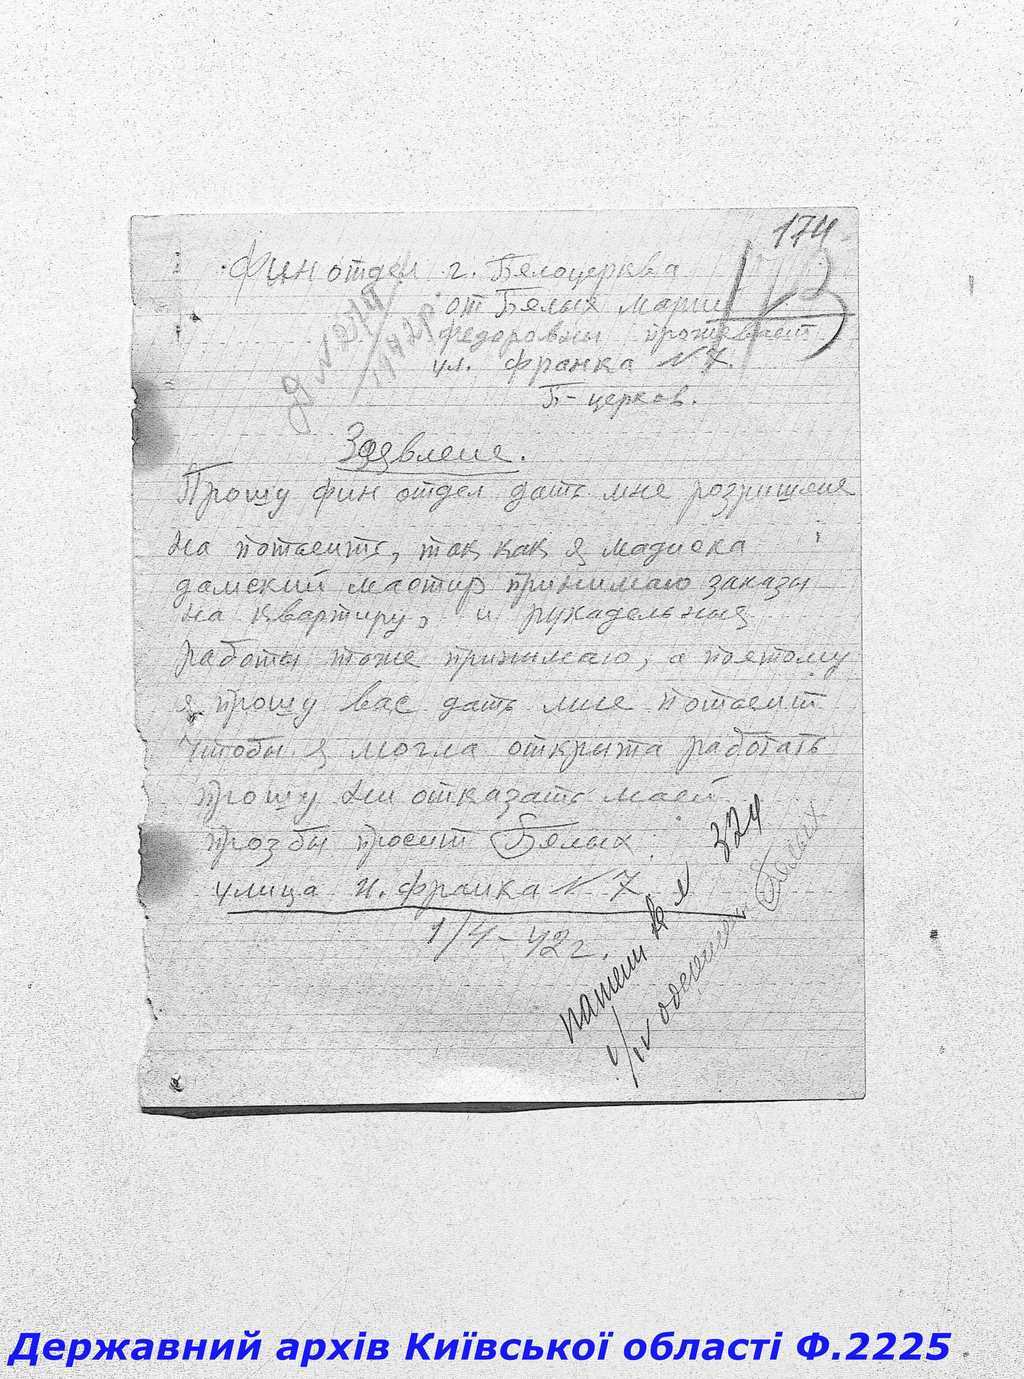 174
173
Фин отдел г. Бялоцерква
от Бялых Марии
Федоровны проживает
ул. Франка № 7.
Б-церков.
Д № 2074
1942р
Заявлене.
Прошу фин отдел дать мне розришеня
На потаент, так как я мадиска
дамский мастир принимаю заказы
на квартиру, и рукадельныя
работы тоже принимаю, а поятому
я прошу вас дать мне потаент
Чтобы я могла открыта работать
прошу ни отказать маей
прозбы просит Бялых
улица И. Франка № 7
1/4-42 г.
патент В № 324
1/IV одержал Бялых
Державний архів Київської області Ф.2225